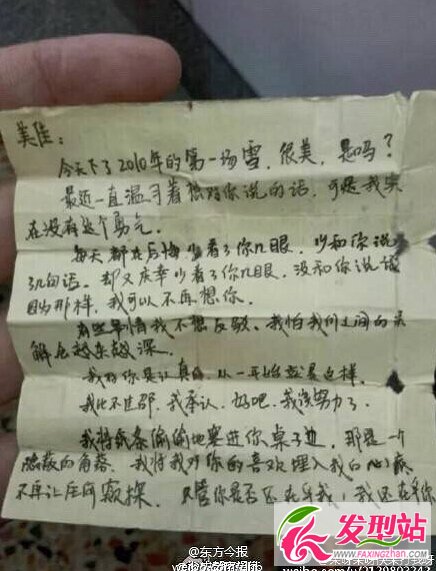 美佳：
今天下了2010年的第一场雪，很美，是吗？
最近一直温习着想对你说的话，可是我实
在没有这个勇气。
每天都在后悔少看了你几眼，少和你说
了几句话。却又庆幸少看了你几眼，没和你说话
因为那样，我可以不再想你。
有些事情我不想反驳，我怕我们之间的误
解会越来越深。
我对你是认真的，从一开始就是这样。
我比不过邵，我承认，好吧，我该努力了。
我将纸条偷偷地塞进你桌子边，那是一个
隐蔽的角落。我将我对你的喜欢埋入我的心脏
不再让任何窥探。只管你是否还在乎我，我还在乎你
@东方今报
发型站
www.faxingzhan.com